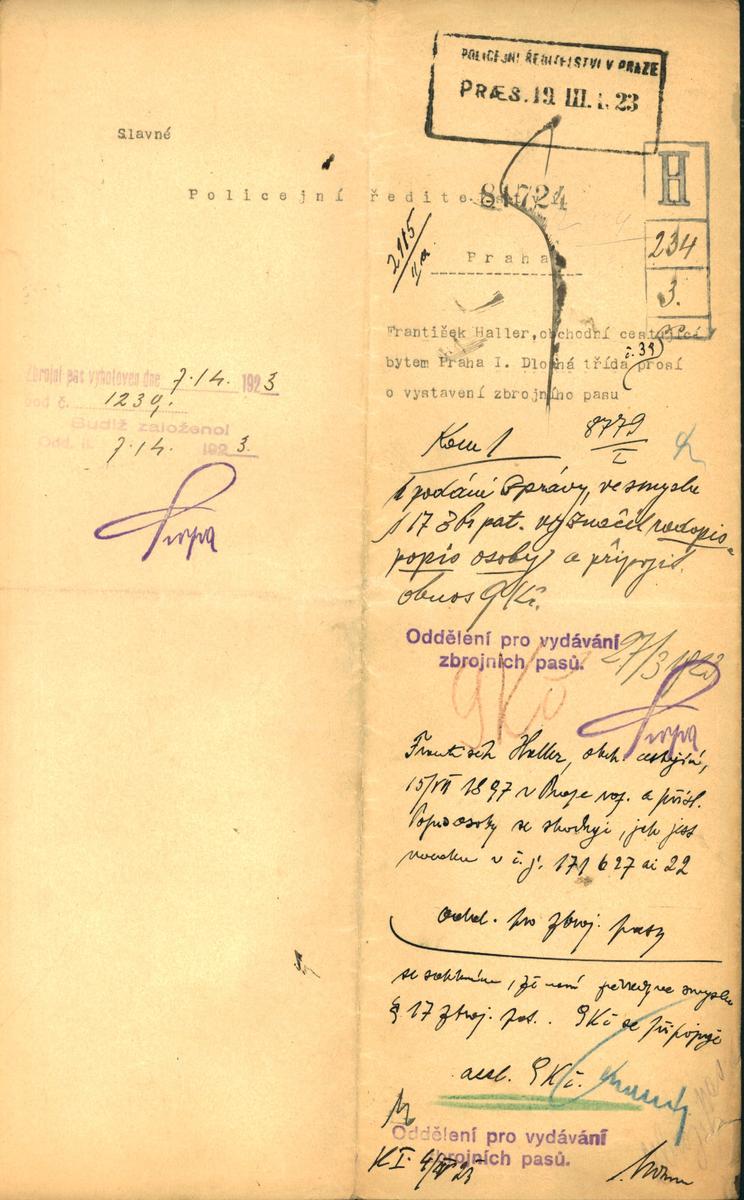 POLICEJNÍ ŘEDITELSTVÍ V PRAZE
PRÆS. 19. III. 1. 23
Slavné
Policejní ředitelství
81724
H
234
3.
2915
II.a.
Praha
František Haller, obchodní cestující
bytem Praha I. Dlouhá třída č. 39 prosí
o vystavení zbrojního pasu
Zbrojní pas vyhotoven dne 7.14. 1923
pod č. 1239.
Budiž založeno!
Odd. II. 7.14. 1923.
Kom I
8779
I
k podání zprávy, ve smyslu
§ 17 zbr pat. vyznačil rodopis
popis osoby a připojil
obnos 9 Kč.
Oddělení pro vydávání
zbrojních pasů.
27/3 1923
9Kč
František Haller, obch. cestující,
15/VII 1897 v Praze nar. a přísl.
Popis osoby se shoduje, jak jest
v č. j. 171627 ai 22
odd. pro zbroj. pasy
se sdělením, že není ve smyslu
§ 17 zbroj. pat. 9Kč se připojuje
9Kč.
Oddělení pro vydávání
zbrojních pasů.
K I. 4/IV 23